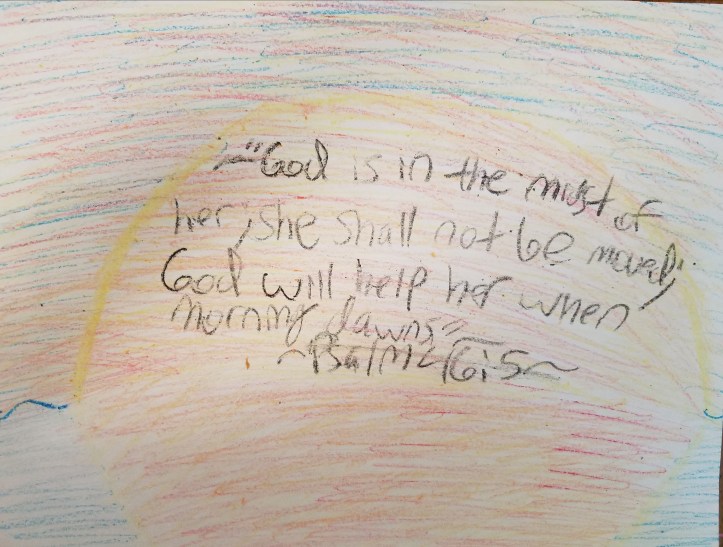 ~"God is in the midst of
her, she shall not be moved;
God will help her when
morning dawns"
~Psalm 46:5~